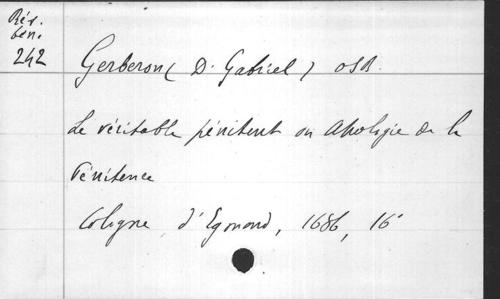 Rés.
ben.
242
Gerberon (D. Gabriel) OSB.
Le véritable pénitent ou Apologie de la
Pénitence
Cologne, d'Egmond, 1686, 16°